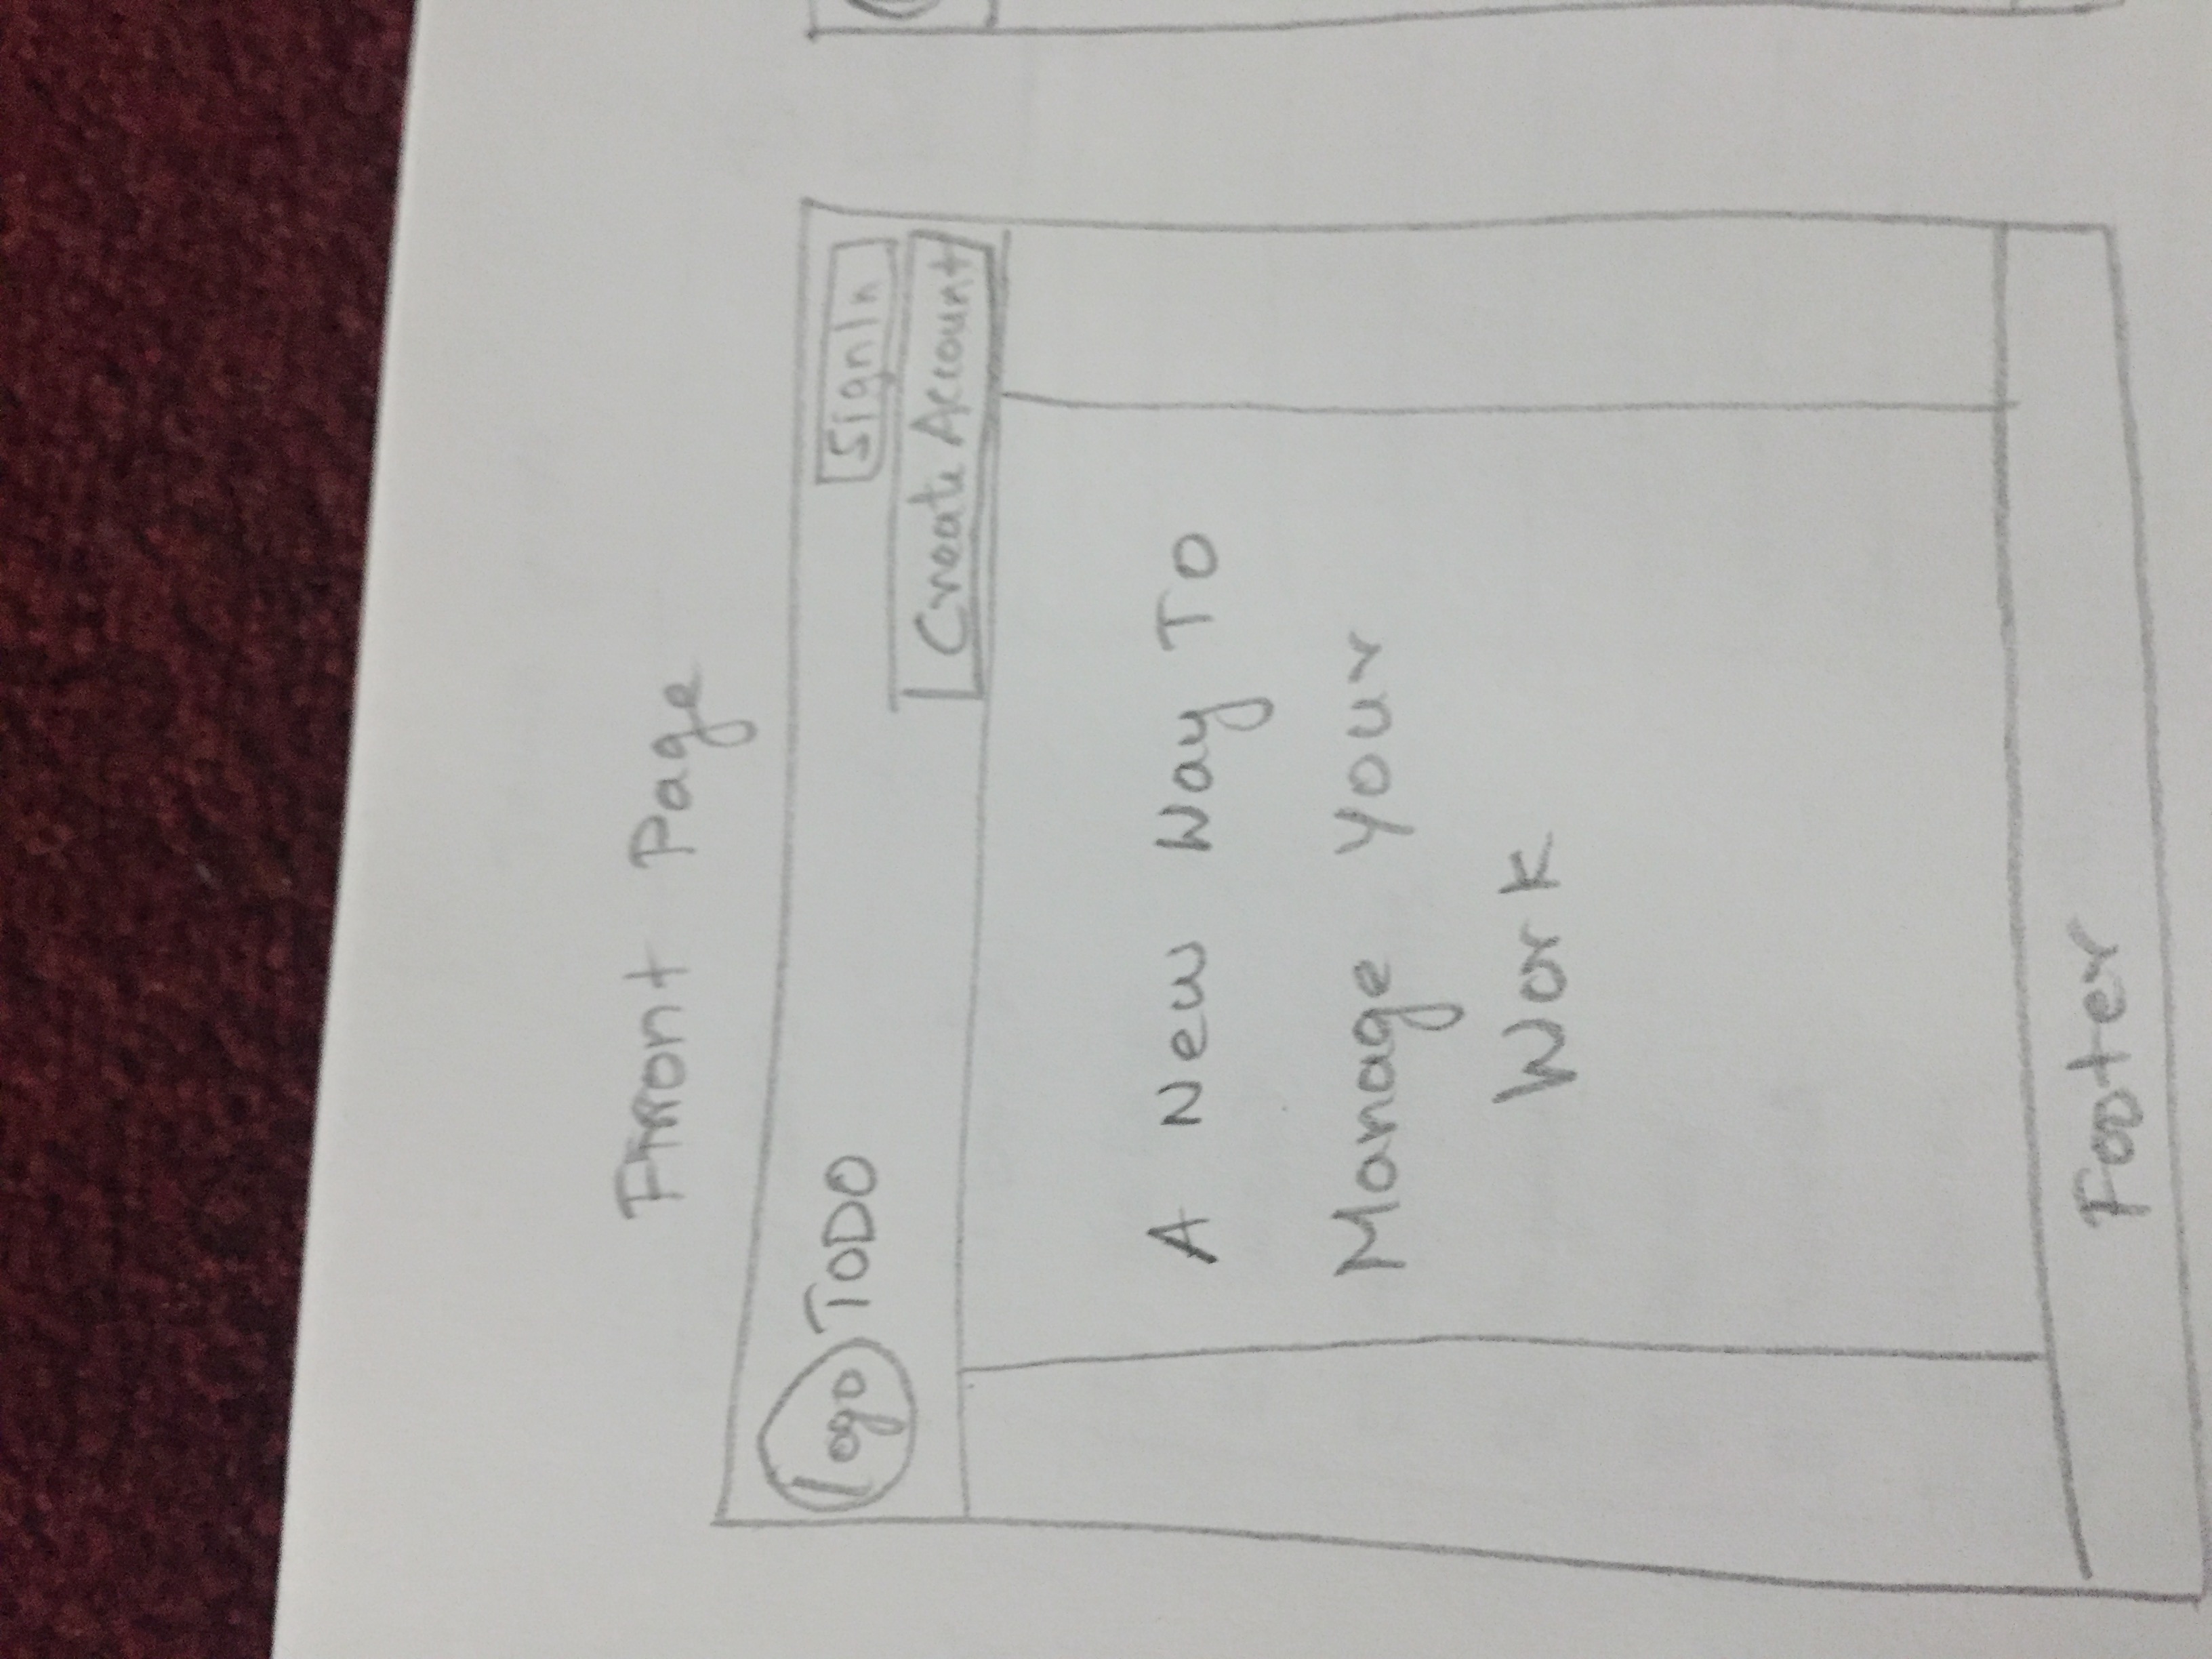 Front Page
logo TODO
SignIn
Create Account
A New Way To
Manage Your
Work
Footer